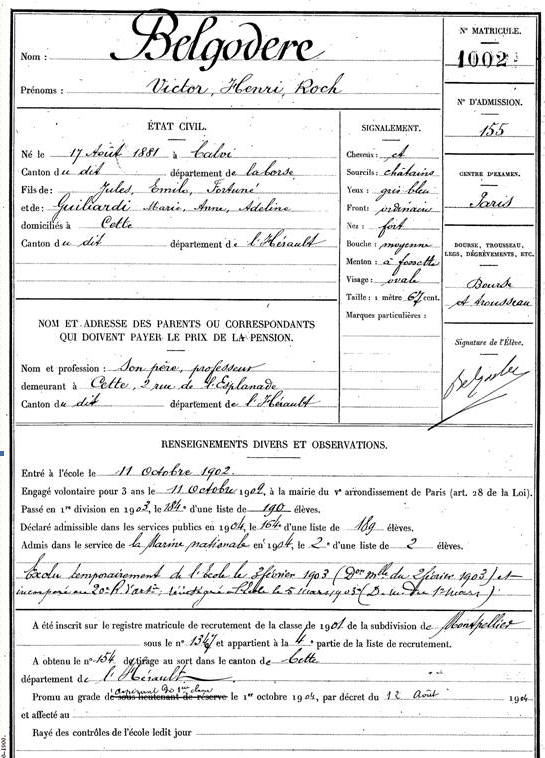 Nom : Belgodere
Prénoms : Victor, Henri, Roch
N° MATRICULE.
1002
N° D'ADMISSION.
155
CENTRE D'EXAMEN.
Paris
BOURSE, TROUSSEAU, LEGS, DÉGRÈVEMENTS, ETC.
Bourse
et trousseau
Signature de l'Élève.
Belgodere
ÉTAT CIVIL.
Né le 17 Août 1881 à Calvi
Canton du dit département de la Corse
Fils de : Jules, Emile, Fortuné
et de : Guiliardi Marie, Anne, Adeline
domiciliés à Cette
Canton du dit département de l'Hérault
SIGNALEMENT.
Cheveux : et
Sourcils : châtains
Yeux : gris bleu
Front : ordinaire
Nez : fort
Bouche : moyenne
Menton : à fossette
Visage : ovale
Taille : 1 mètre 67 cent.
Marques particulières :
NOM ET ADRESSE DES PARENTS OU CORRESPONDANTS
QUI DOIVENT PAYER LE PRIX DE LA PENSION.
Nom et profession : Son père, professeur
demeurant à Cette, 2 rue de l'Esplanade
Canton du dit département de l'Hérault
RENSEIGNEMENTS DIVERS ET OBSERVATIONS.
Entré à l'école le 11 Octobre 1902.
Engagé volontaire pour 3 ans le 11 Octobre 1902, à la mairie du Ve arrondissement de Paris (art. 28 de la Loi).
Passé en 1re division en 1903, le 184e d'une liste de 190 élèves.
Déclaré admissible dans les services publics en 1904, le 164e d'une liste de 189 élèves.
Admis dans le service de la Marine nationale en 1904, le 2e d'une liste de 2 élèves.
Exclu temporairement de l'Ecole le 3 février 1903 (Don mlle du 2 février 1903) et
incorporé au 20e R. d'arti. réintégré à l'école le 5 mars 1903 (D. m. du 1er mars).
A été inscrit sur le registre matricule de recrutement de la classe de 1901 de la subdivision de Montpellier
sous le n° 1347 et appartient à la 4e partie de la liste de recrutement.
A obtenu le n° 154 de tirage au sort dans le canton de Cette
département de l'Hérault.
aspirant de 1re classe
Promu au grade de sous-lieutenant de réserve le 1er octobre 1904, par décret du 12 Août 1904
et affecté au
Rayé des contrôles de l'école ledit jour